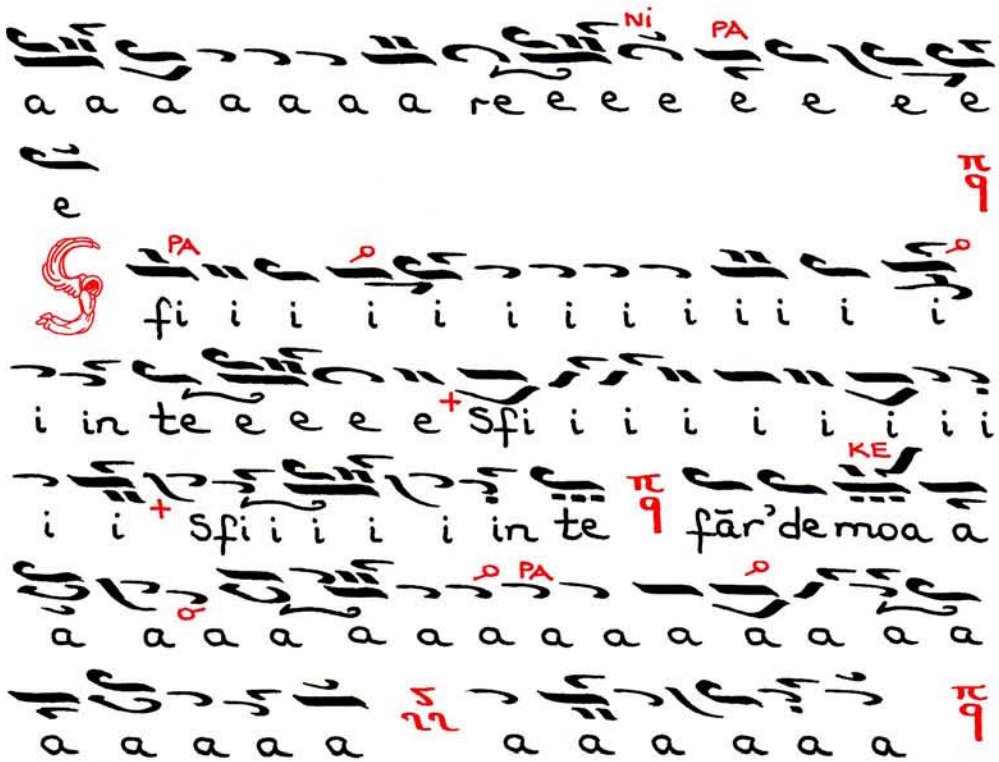 Ni PA
a a a a a a a re e e e e e e e
e π q
S PA
fi i i i i i i i i i i i i
i in te e e e e + Sfi i i i i i i i i
i i + Sfi i i i i in te π q KE făr' de moa a
PA
a a a a a a a a a a a a a a
a a a a a a a a a a a π q